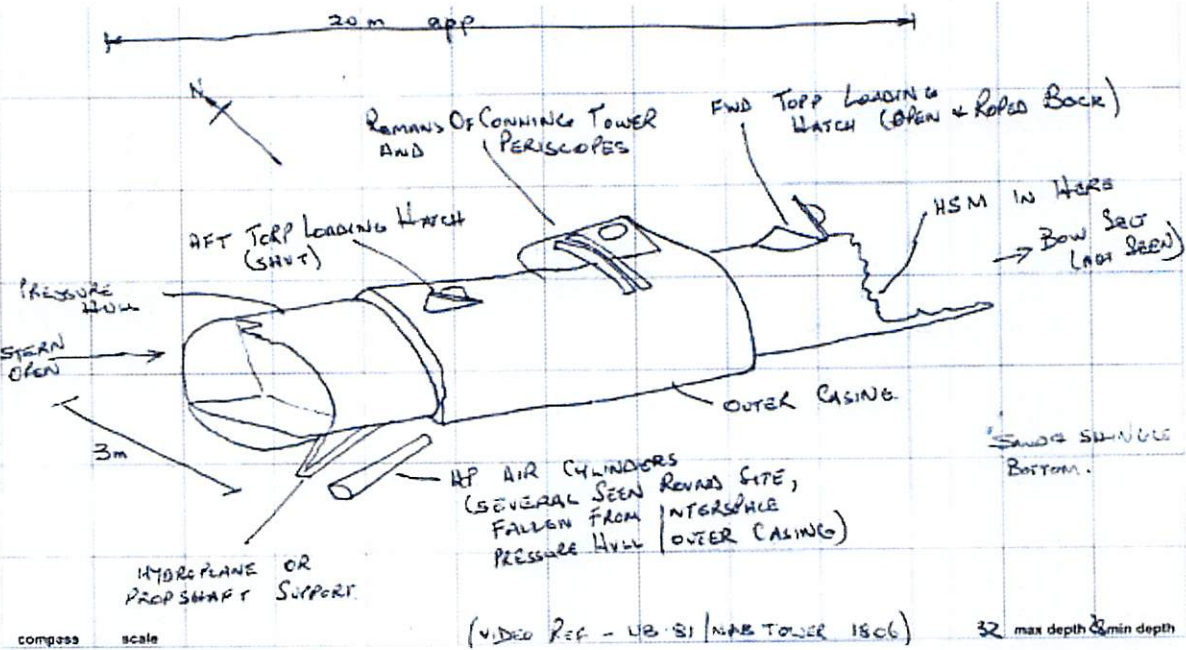 20 m app
N
REMANS OF CONNING TOWER
AND PERISCOPES
FWD TOPP LOADING
HATCH (OPEN & ROPED BACK)
AFT TORP LOADING HATCH
(SHUT)
HSM IN HERE
BOW SECT
(NOT SEEN)
PRESSURE
HULL
STERN
OPEN
OUTER CASING
3m
SAND & SHINGLE
BOTTOM.
HP AIR CYLINDERS
(SEVERAL SEEN ROUND SITE,
FALLEN FROM INTERSPACE
PRESSURE HULL / OUTER CASING)
HYDROPLANE OR
PROPSHAFT SUPPORT
compass scale
(VIDEO REF - UB-81 / NAB TOWER 1806)
32 max depth min depth